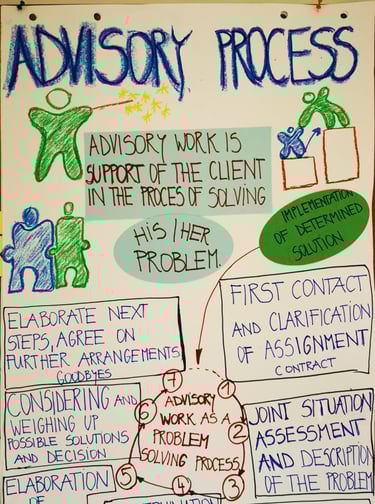 ADVISORY PROCESS
ADVISORY WORK IS
SUPPORT OF THE CLIENT
IN THE PROCES OF SOLVING
HIS / HER
PROBLEM.
IMPLEMENTATION
OF DETERMINED
SOLUTION
FIRST CONTACT
AND CLARIFICATION
OF ASSIGNMENT
CONTRACT
ELABORATE NEXT
STEPS, AGREE ON
FURTHER ARRANGEMENTS
GOODBYES
CONSIDERING AND
WEIGHING UP
POSSIBLE SOLUTIONS
AND DECISION
ELABORATION
OF
7
1
6
2
5
3
4
ADVISORY
WORK AS A
PROBLEM
SOLVING PROCESS
JOINT SITUATION
ASSESSMENT
AND DESCRIPTION
OF THE PROBLEM